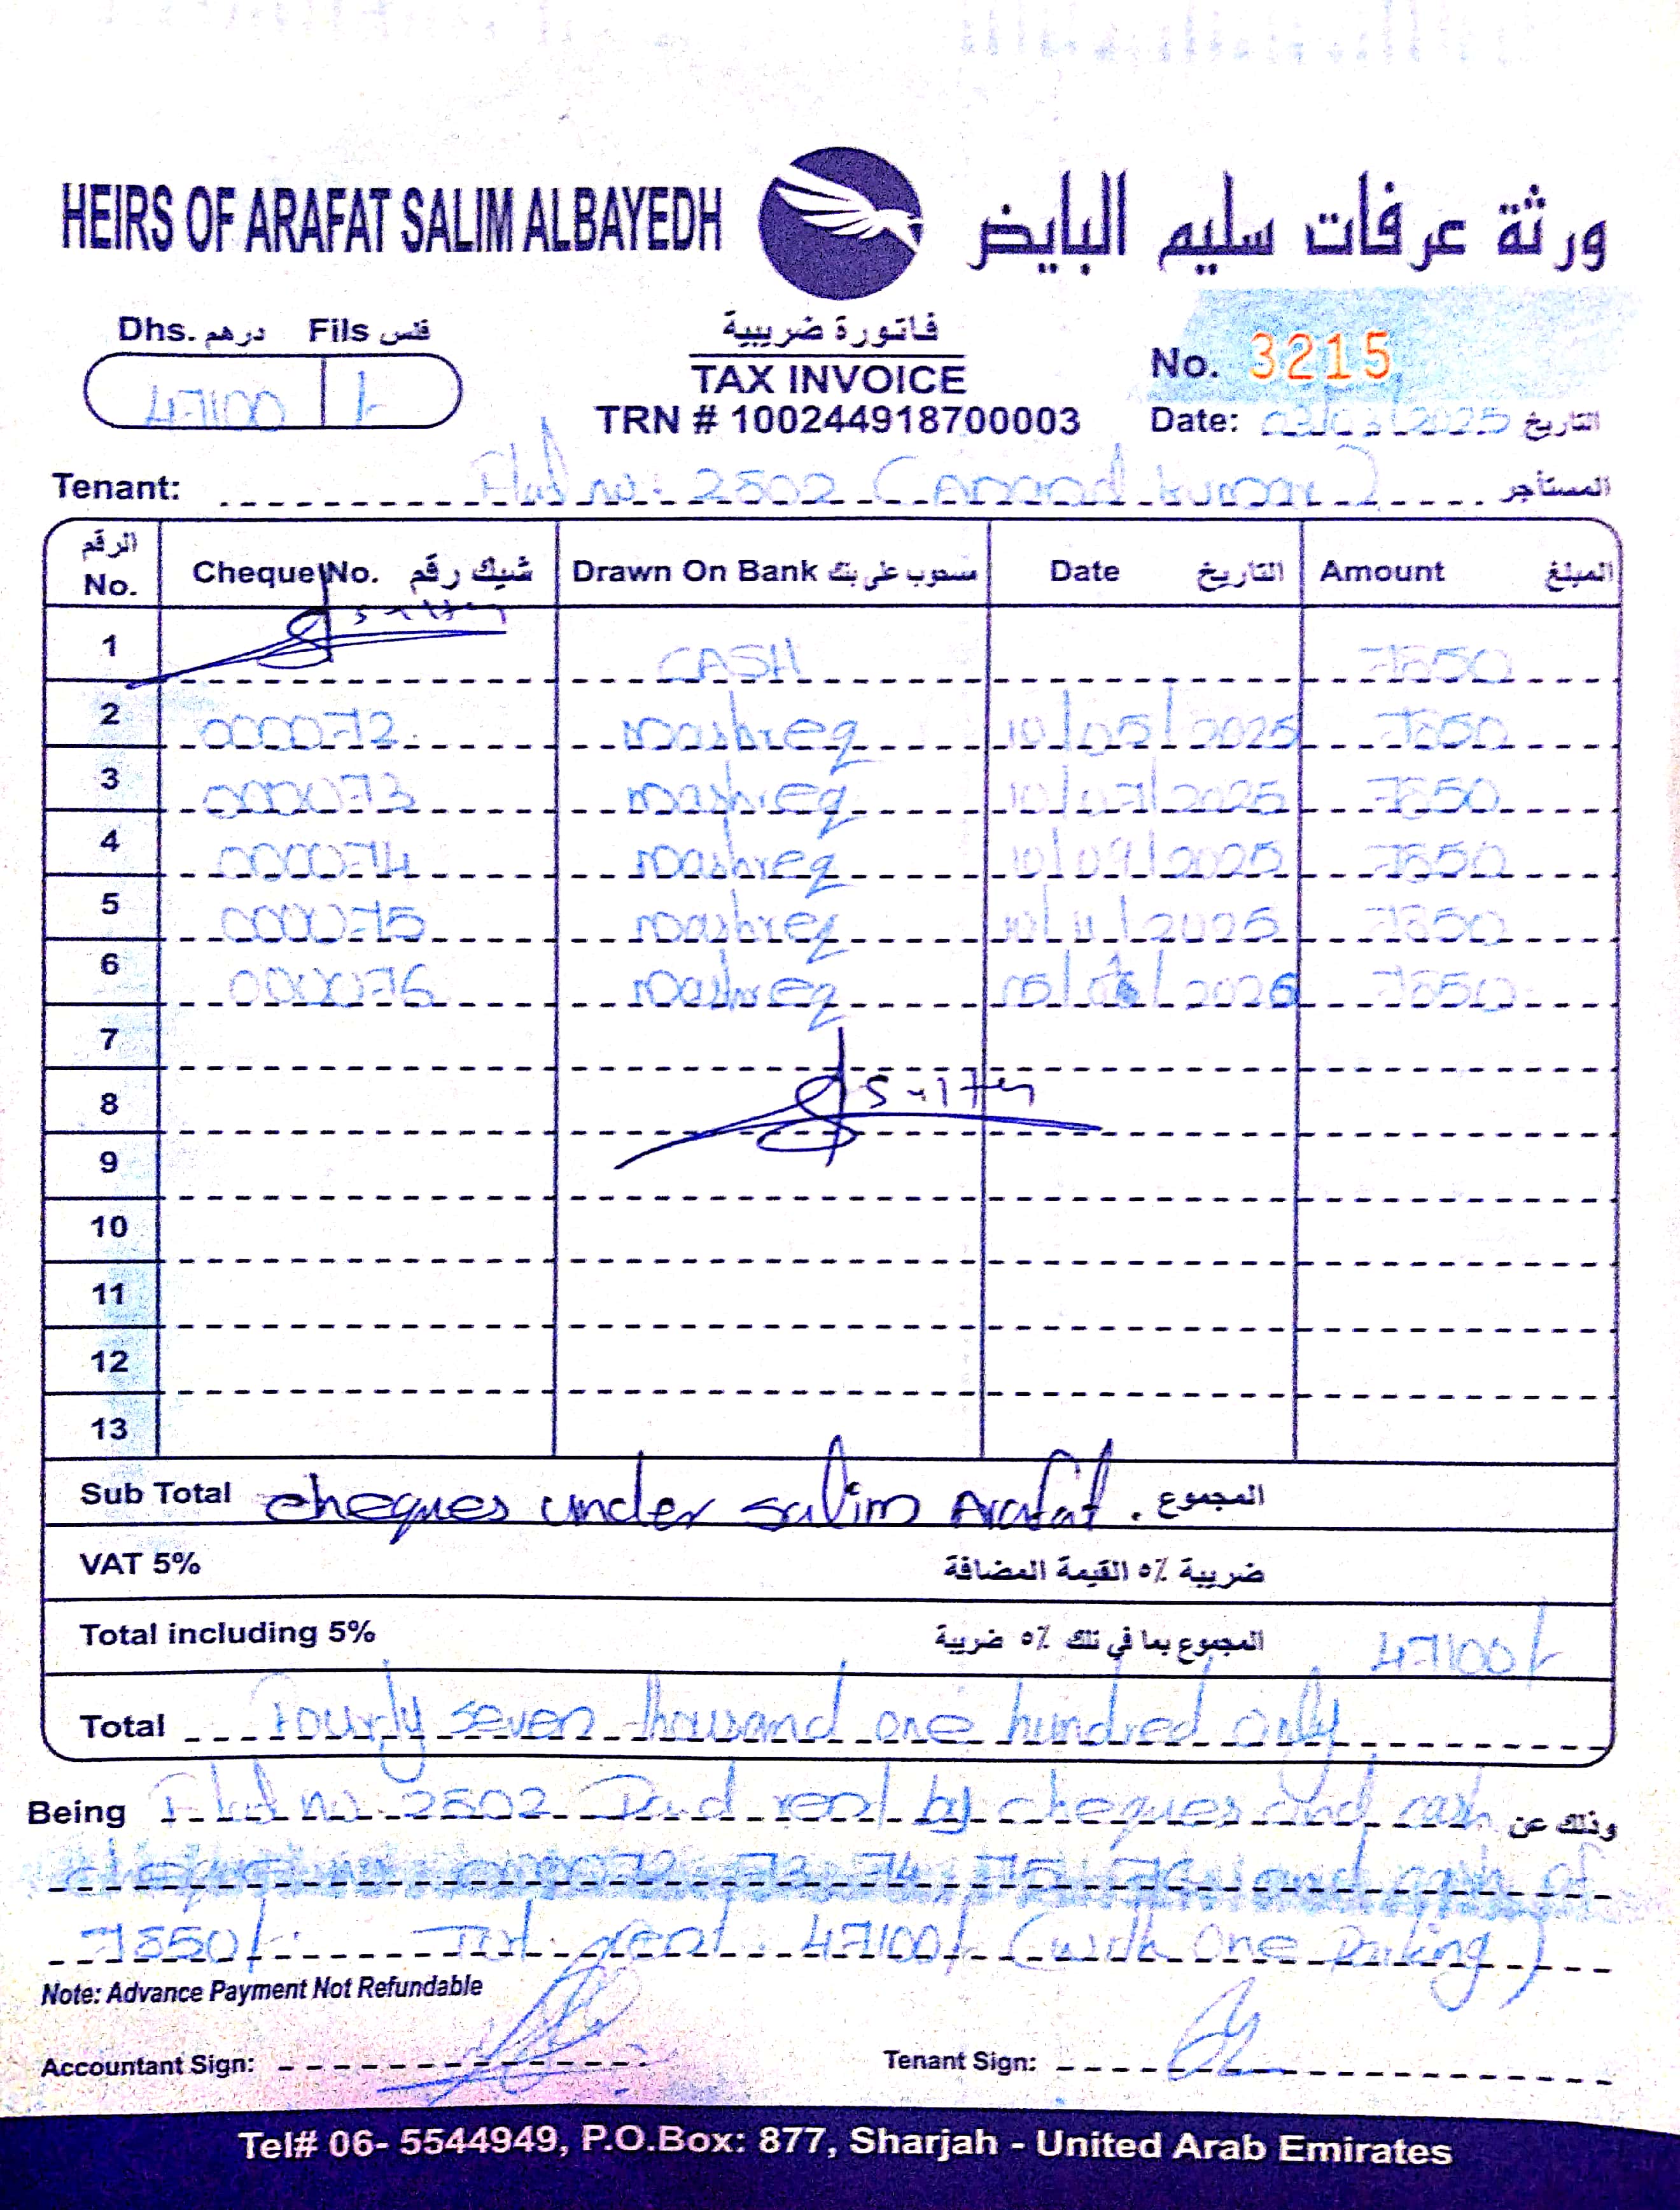 HEIRS OF ARAFAT SALIM ALBAYEDH ورثة عرفات سليم البايض
Dhs. درهم Fils فلس
47100 /-
فاتورة ضريبية
TAX INVOICE
TRN # 100244918700003
No. 3215
Date: 03/03/2025 التاريخ
Tenant: Flat no: 2502 (Anand kumar) المستأجر
الرقم No. Cheque No. شيك رقم Drawn On Bank مسحوب على بنك Date التاريخ Amount المبلغ
1 CASH 7850
2 0000072 mashreq 10/05/2025 7850
3 0000073 mashreq 10/07/2025 7850
4 0000074 mashreq 10/09/2025 7850
5 0000075 mashreq 10/11/2025 7850
6 0000076 mashreq 2026 7850
7
8
9
10
11
12
13
Sub Total cheques under salim Arafat. المجموع
VAT 5% ضريبة ٥٪ القيمة المضافة
Total including 5% المجموع بما في تلك ٥٪ ضريبة 47100/-
Total Fourty seven thousand one hundred only
Being Flat no. 2502 Paid rent by cheques and cash وذلك عن
cheque no 0000072, 73, 74, 75, 76 and cash of
7850/-. Tot. rent. 47100/- (with One Parking)
Note: Advance Payment Not Refundable
Accountant Sign: Tenant Sign:
Tel# 06- 5544949, P.O.Box: 877, Sharjah - United Arab Emirates